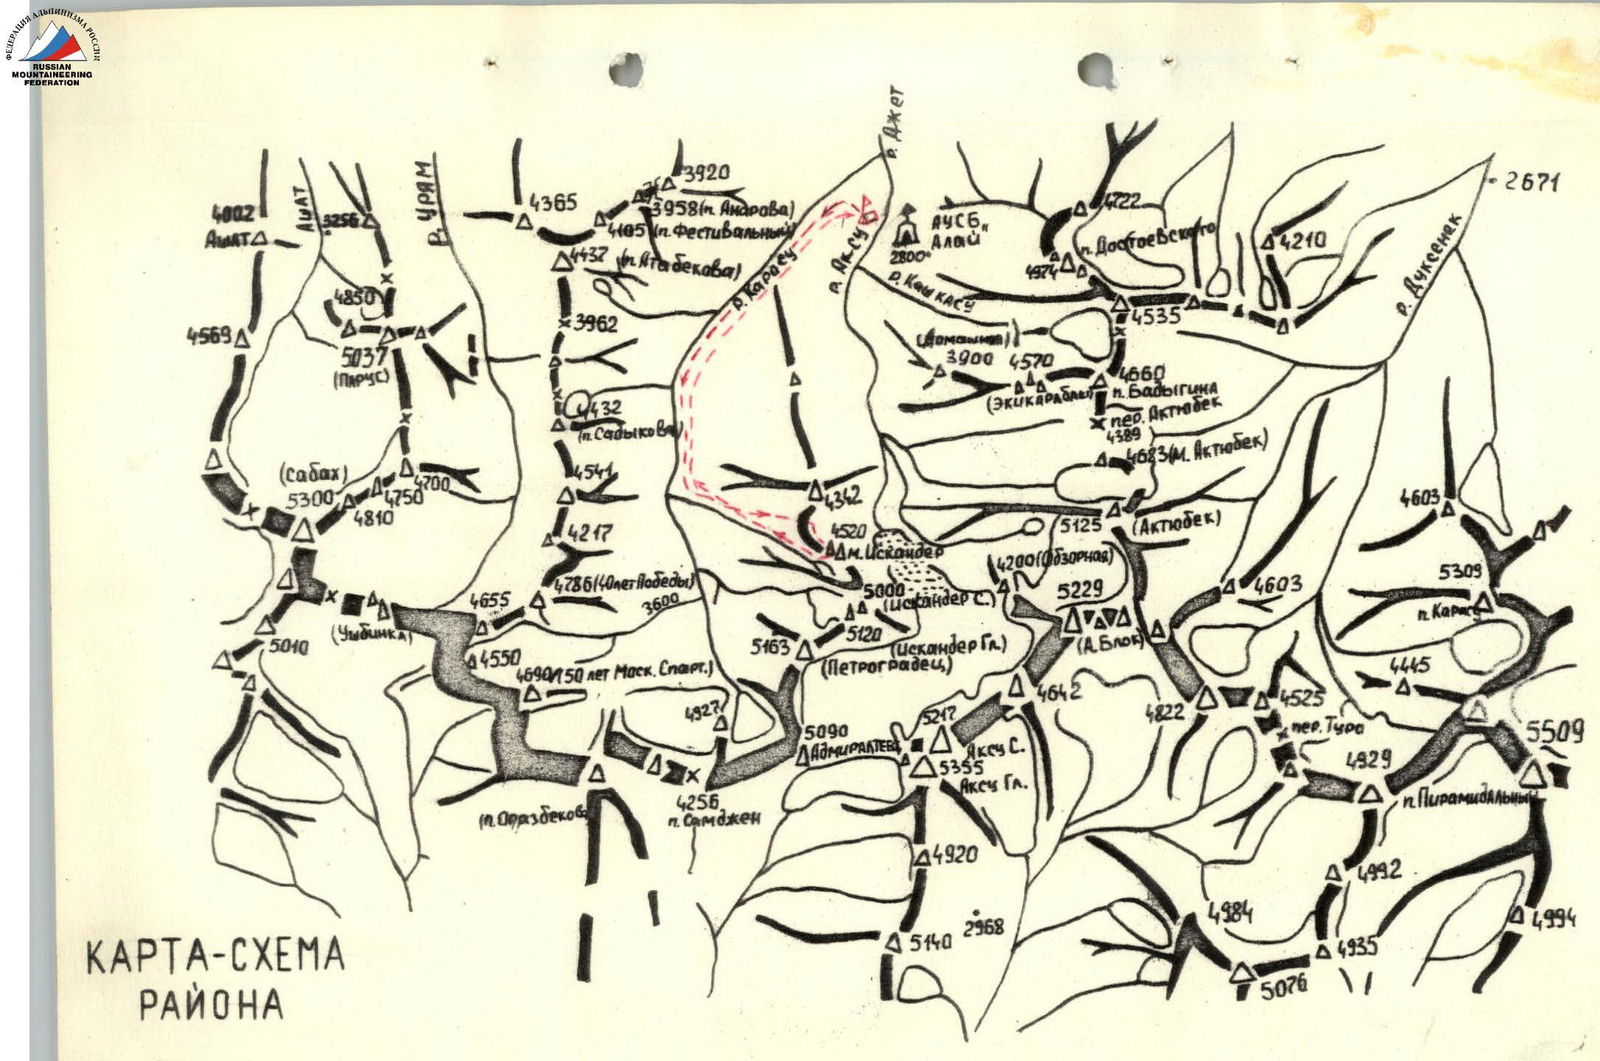 ФЕДЕРАЦИЯ АЛЬПИНИЗМА РОССИИ
RUSSIAN
MOUNTAINEERING
FEDERATION
р. Джет
4002
Ашат
АШАТ
3256
р. УРЯМ
4365
3920
3958 (п. Андрова)
4105 (п. Фестивальный)
4437
(п. Атабекова)
р. Карасу
р. Аксу
АУСБ
"Алай"
2800
р. Кашкасу
4722
п. Достоевского
4974
4210
2671
р. Дуксенек
4850
4569
5037
(ПАРУС)
3962
4535
(Домашняя)
3900
4570
(Экикараблык)
4660
п. Бадыгина
пер. Актюбек
4389
4683 (М. Актюбек)
4432
(п. Садыкова)
(Сабах)
5300
4810
4750
4700
4541
4342
4217
4520
м. Искандер
5125
(Актюбек)
4603
4200 (Обзорная)
4786 (40 лет Победы)
3600
5000
(Искандер С.)
5229
(А. Блок)
4603
5309
п. Карасу
4655
(Уыбинка)
5010
5120
(Искандер Гл.)
5163
(Петроградец)
4550
4690 (150 лет Моск. Спарт.)
4642
4822
4525
4445
4927
5217
Аксу С.
5090
Адмиралтеец
5355
Аксу Гл.
пер. Туро
5509
4929
п. Пирамидальный
4256
п. Самджен
(п. Оразбекова)
4920
4992
2968
4984
4994
5140
4935
5076
КАРТА-СХЕМА
РАЙОНА